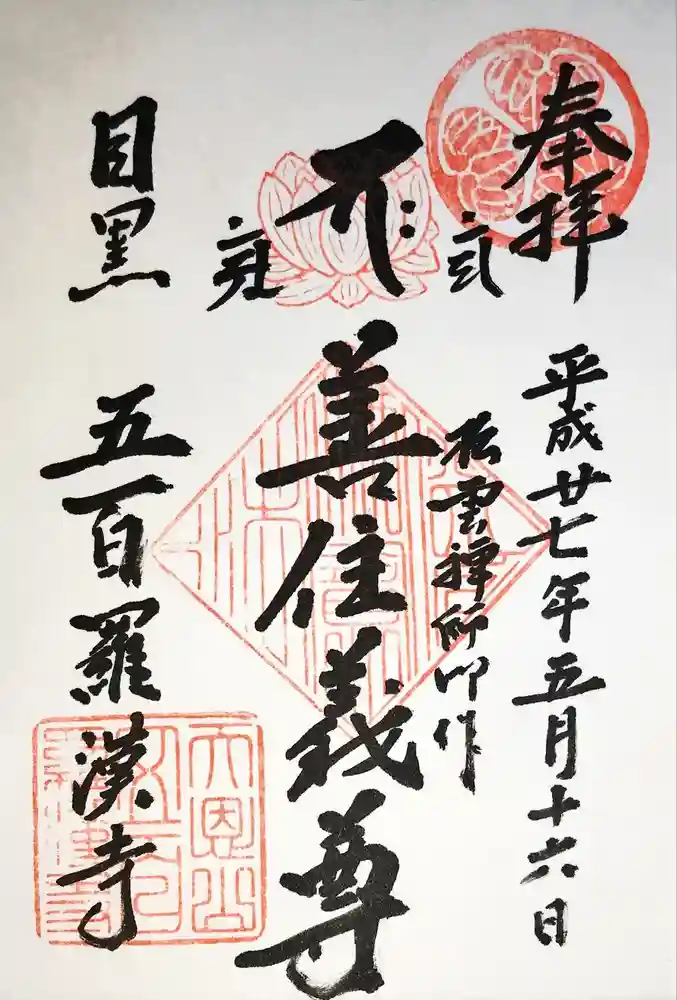 奉拝
平成廿七年五月十六日
松雲禪師御作
善住義尊
目黒
五百羅漢寺
天恩山